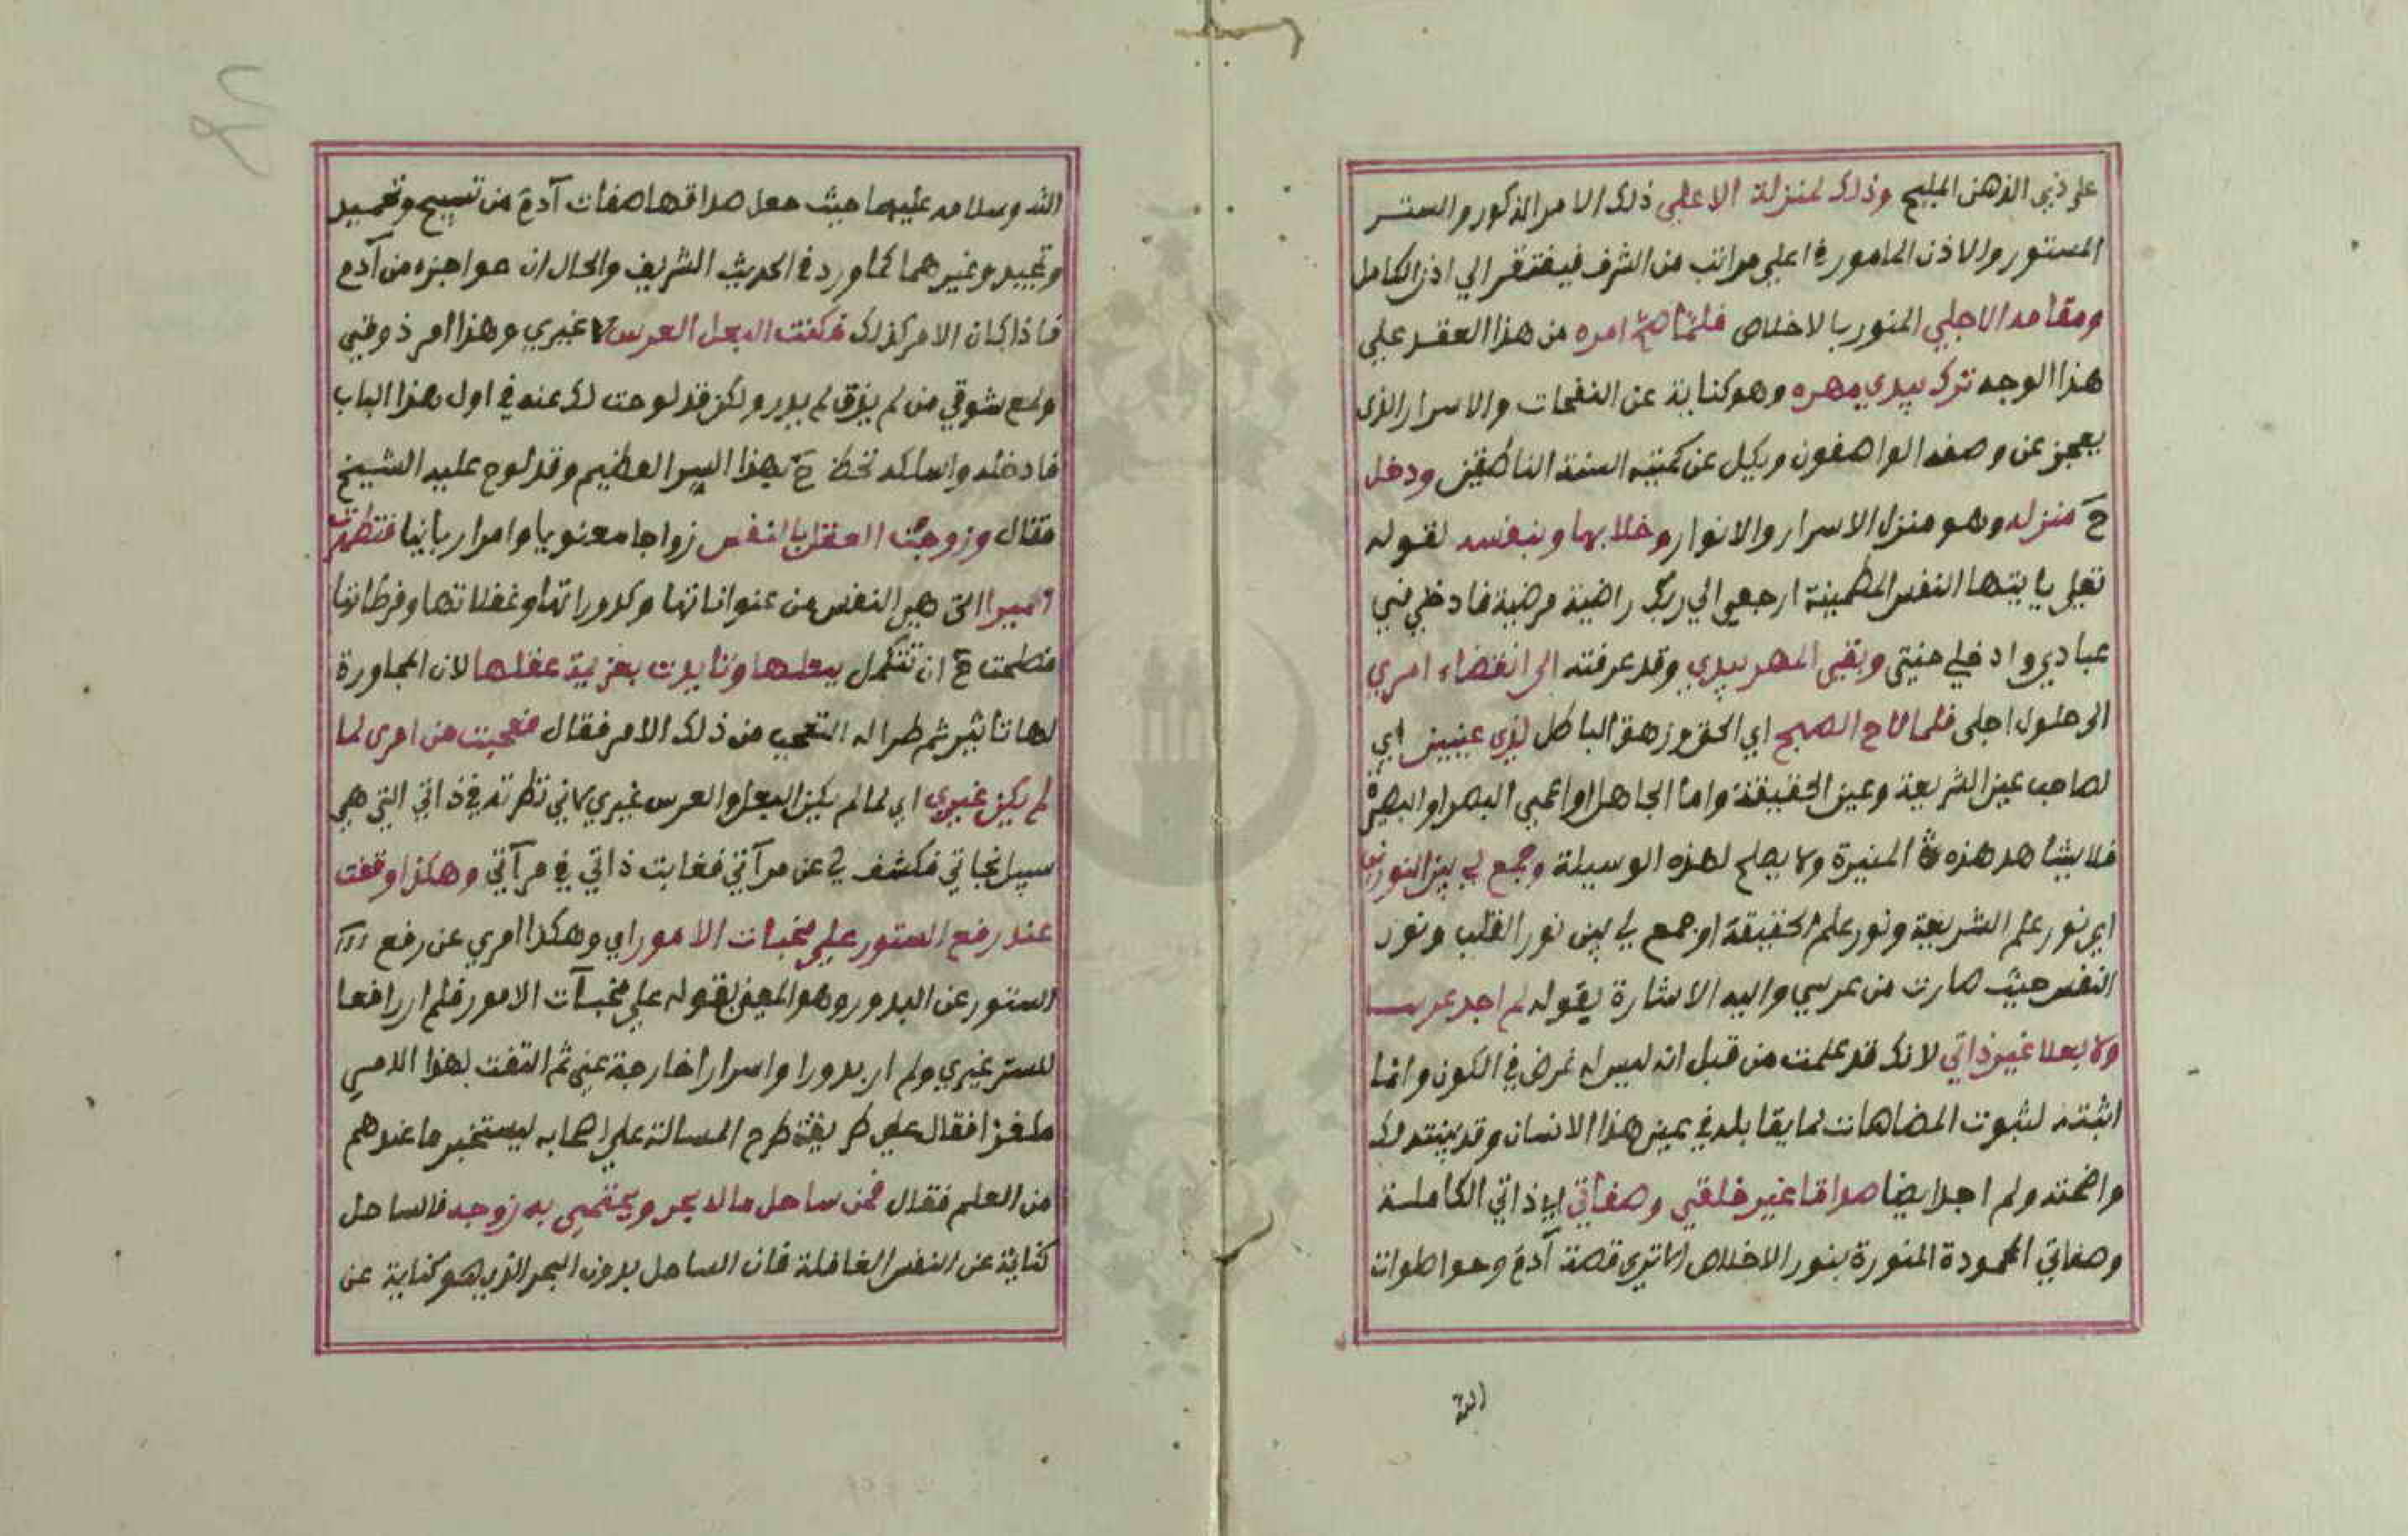 على ذي الذهن المليح وذلك لمنزلة الاعلى ذلك الامر المذكور والستر
المستور والاذن المامور في اعلى مراتب من الشرف فيفتقر الي اذن الكامل
ومقامه الاجلي المنور بالاخلاص فلما تم امره من هذا العقد علي
هذا الوجه ترك بيدي مهره وهو كناية عن النفحات والاسرار الذي
يعجز عن وصفه الواصفون ويكل عن كنهه السنة الناطقين ودخل
ح منزله وهو منزل الاسرار والانوار وخلا بها وبنفسه لقوله
تعلى يا ايتها النفس المطمينة ارجعي الي ربك راضية مرضية فادخلي في
عبادي وادخلي جنتي وبقى المهر بيدي وقد عرفته الى انقضاء امري
الى حلول اجلى فلما لاح الصبح اي الحق وزهق الباطل لذي عينين اي
لصاحب عين الشريعة وعين الحقيقة واما الجاهل او اعمي البصر او البصيرة
فلا يشاهد هذه المنيرة ولا يصلح لهذه الوسيلة وجمع لي بين النورين
اي نور علم الشريعة ونور علم الحقيقة او جمع لي بين نور القلب ونور
النفس حيث صارت من عرسي واليه الاشارة بقوله لم اجد عرسا
ولا بعلا غير ذاتي لانك قد علمت من قبل انه ليس له غرض في الكون وانما
اثبتنه لثبوت المضاهات لما يقابله في عين هذا الانسان وقد بينته لك
واضحته ولم اجد ايضا صداقا غير خلقي وصفاتي اي ذاتي الكاملة
وصفاتي المحمودة المنورة بنور الاخلاص الا تري قصة آدم وحوا صلوات
الله
الله وسلامه عليهما حيث جعل صداقها صفات آدم من تسبيح وتحميد
وتمجيد وغيرهما كما ورد في الحديث الشريف والحال ان حوا جزء من آدم
فاذا كان الامر كذلك فكنت البعل العرس لا غيري وهذا امر ذوقي
ولمع شوقي من لم يذق لم يدر ولكن قد لوحت لك عنه في اول هذا الباب
فادخله واسلكه تحظ ح بهذا السر العظيم وقد لوح عليه الشيخ
فقال وزوجت العقل بالنفس زواجا معنويا وامرا ربانيا فتطهرت
اسيرا التي هي النفس من عنواناتها وكدوراتها وغفلاتها وفرطاتها
فطمحت ح ان تتكمل ببعلها وتايدت بعزيمة عقلها لان المجاورة
لها تاثير ثم طرا له التعجب من ذلك الامر فقال فعجبت من امري لما
لم يكن غيري اي لما لم يكن البعل والعرس غيري لاني نظرته في ذاتي التي هي
سبيل نجاتي فكشف لي عن مرآتي فغابت ذاتي في مرآتي وهكذا وقفت
عند رفع الستور على مخبات الامور اي وهكذا امري عن رفع
الستور عن البدور وهو المعني بقوله علي مخبآت الامور فلم ار رافعا
للستر غيري ولم ار بدورا واسرارا خارجة عني ثم التفت لهذا الامر
ملغزا فقال علي طريقة طرح المسالة علي اصحابه ليستخبر ما عندهم
من العلم فقال فمن ساحل ماله بحر ويحتمي به زوجه فالساحل
كناية عن النفس الغافلة فان الساحل بدون البحر الذي هو كناية عن